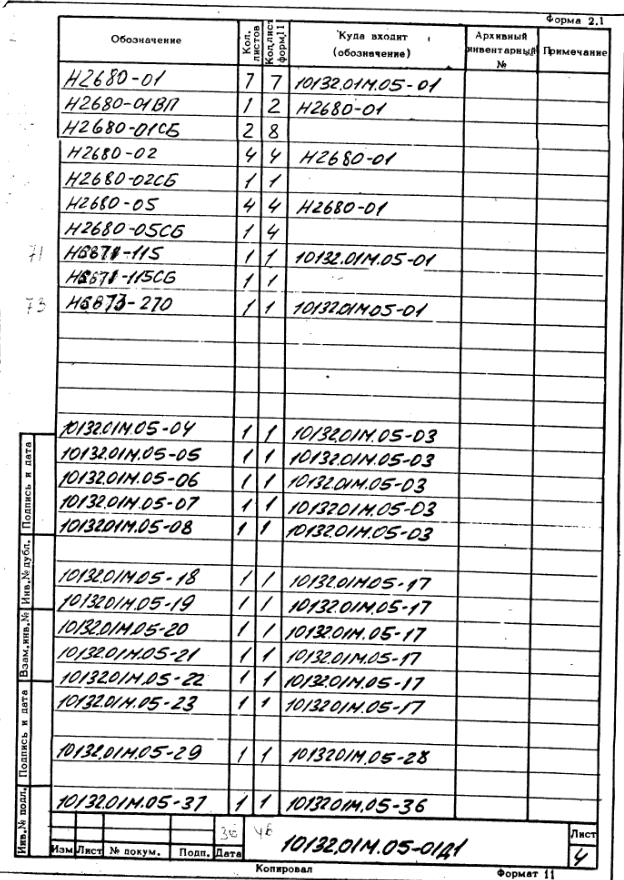 Форма 2.1
Обозначение Кол. листов Кол.лист форм.11 Куда входит (обозначение) Архивный инвентарный № Примечание
Н2680-01 7 7 10132.01М.05-01
Н2680-01ВП 1 2 Н2680-01
Н2680-01СБ 2 8
Н2680-02 4 4 Н2680-01
Н2680-02СБ 1 1
Н2680-05 4 4 Н2680-01
Н2680-05СБ 1 4
71 1 1 10132.01М.05-01
1 1
73 1 1 10132.01М.05-01
10132.01М.05-04 1 1 10132.01М.05-03
10132.01М.05-05 1 1 10132.01М.05-03
10132.01М.05-06 1 1 10132.01М.05-03
10132.01М.05-07 1 1 10132.01М.05-03
10132.01М.05-08 1 1 10132.01М.05-03
10132.01М.05-18 1 1 10132.01М.05-17
10132.01М.05-19 1 1 10132.01М.05-17
10132.01М.05-20 1 1 10132.01М.05-17
10132.01М.05-21 1 1 10132.01М.05-17
10132.01М.05-22 1 1 10132.01М.05-17
10132.01М.05-23 1 1 10132.01М.05-17
10132.01М.05-29 1 1 10132.01М.05-28
10132.01М.05-37 1 1 10132.01М.05-36
Подпись и дата
Инв.№ дубл.
Взам.инв.№
Подпись и дата
Инв.№ подл.
10132.01М.05-01Д1
Лист
4
Изм Лист № докум. Подп. Дата
Копировал Формат 11